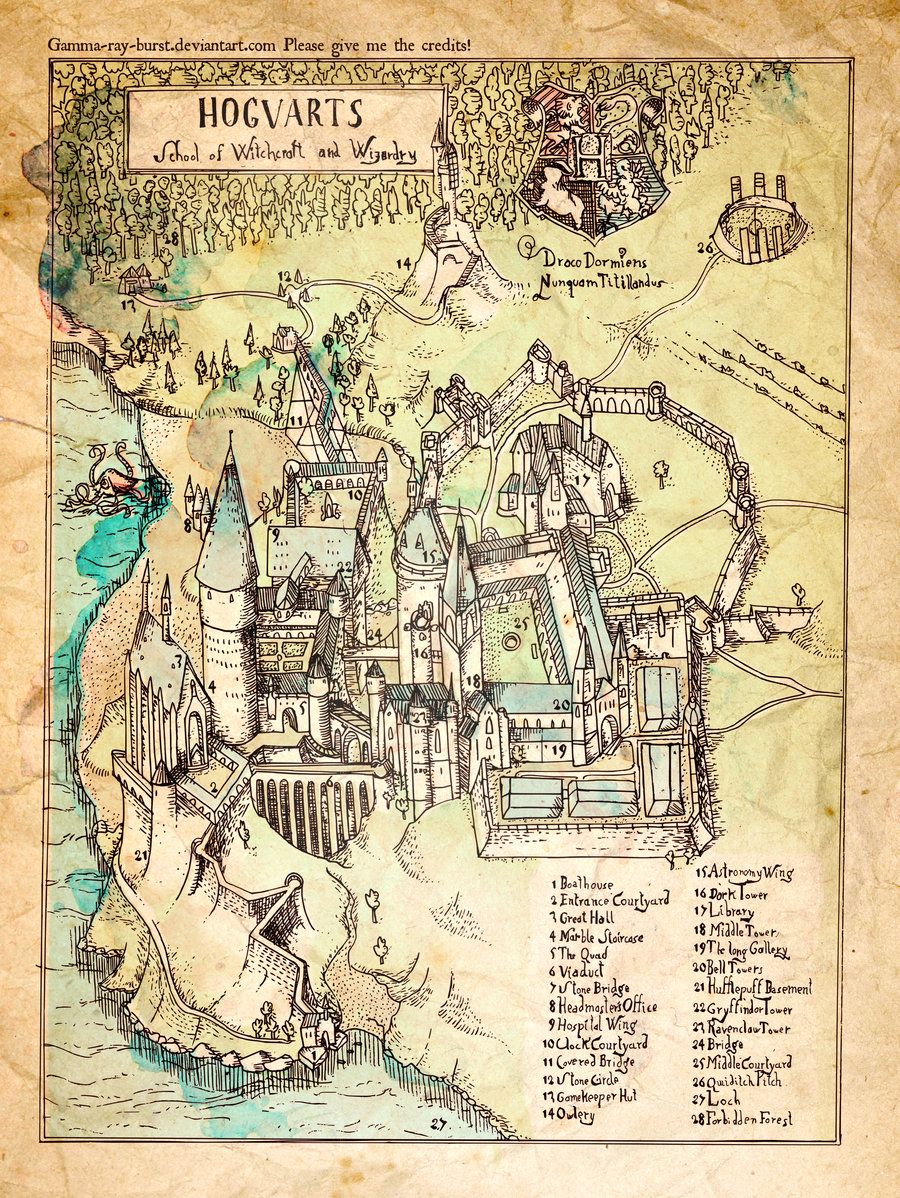 Gamma-ray-burst.deviantart.com Please give me the credits!
HOGVARTS
School of Witchcraft and Wizardry
H
Draco Dormiens
Nunquam Titillandus
28
26
14
12
13
11
10
17
8
9
15
22
25
24
16
3
4
18
5
23
20
19
2
21
27
1 Boathouse
2 Entrance Courtyard
3 Great Hall
4 Marble Staircase
5 The Quad
6 Viaduct
7 Stone Bridge
8 Headmasters Office
9 Hospital Wing
10 Clock Courtyard
11 Covered Bridge
12 Stone Circle
13 Gamekeeper Hut
14 Owlery
15 Astronomy Wing
16 Dark Tower
17 Library
18 Middle Tower
19 The long Gallery
20 Bell Towers
21 Hufflepuff Basement
22 Gryffindor Tower
23 Ravenclaw Tower
24 Bridge
25 Middle Courtyard
26 Quiditch Pitch
27 Loch
28 Forbidden Forest